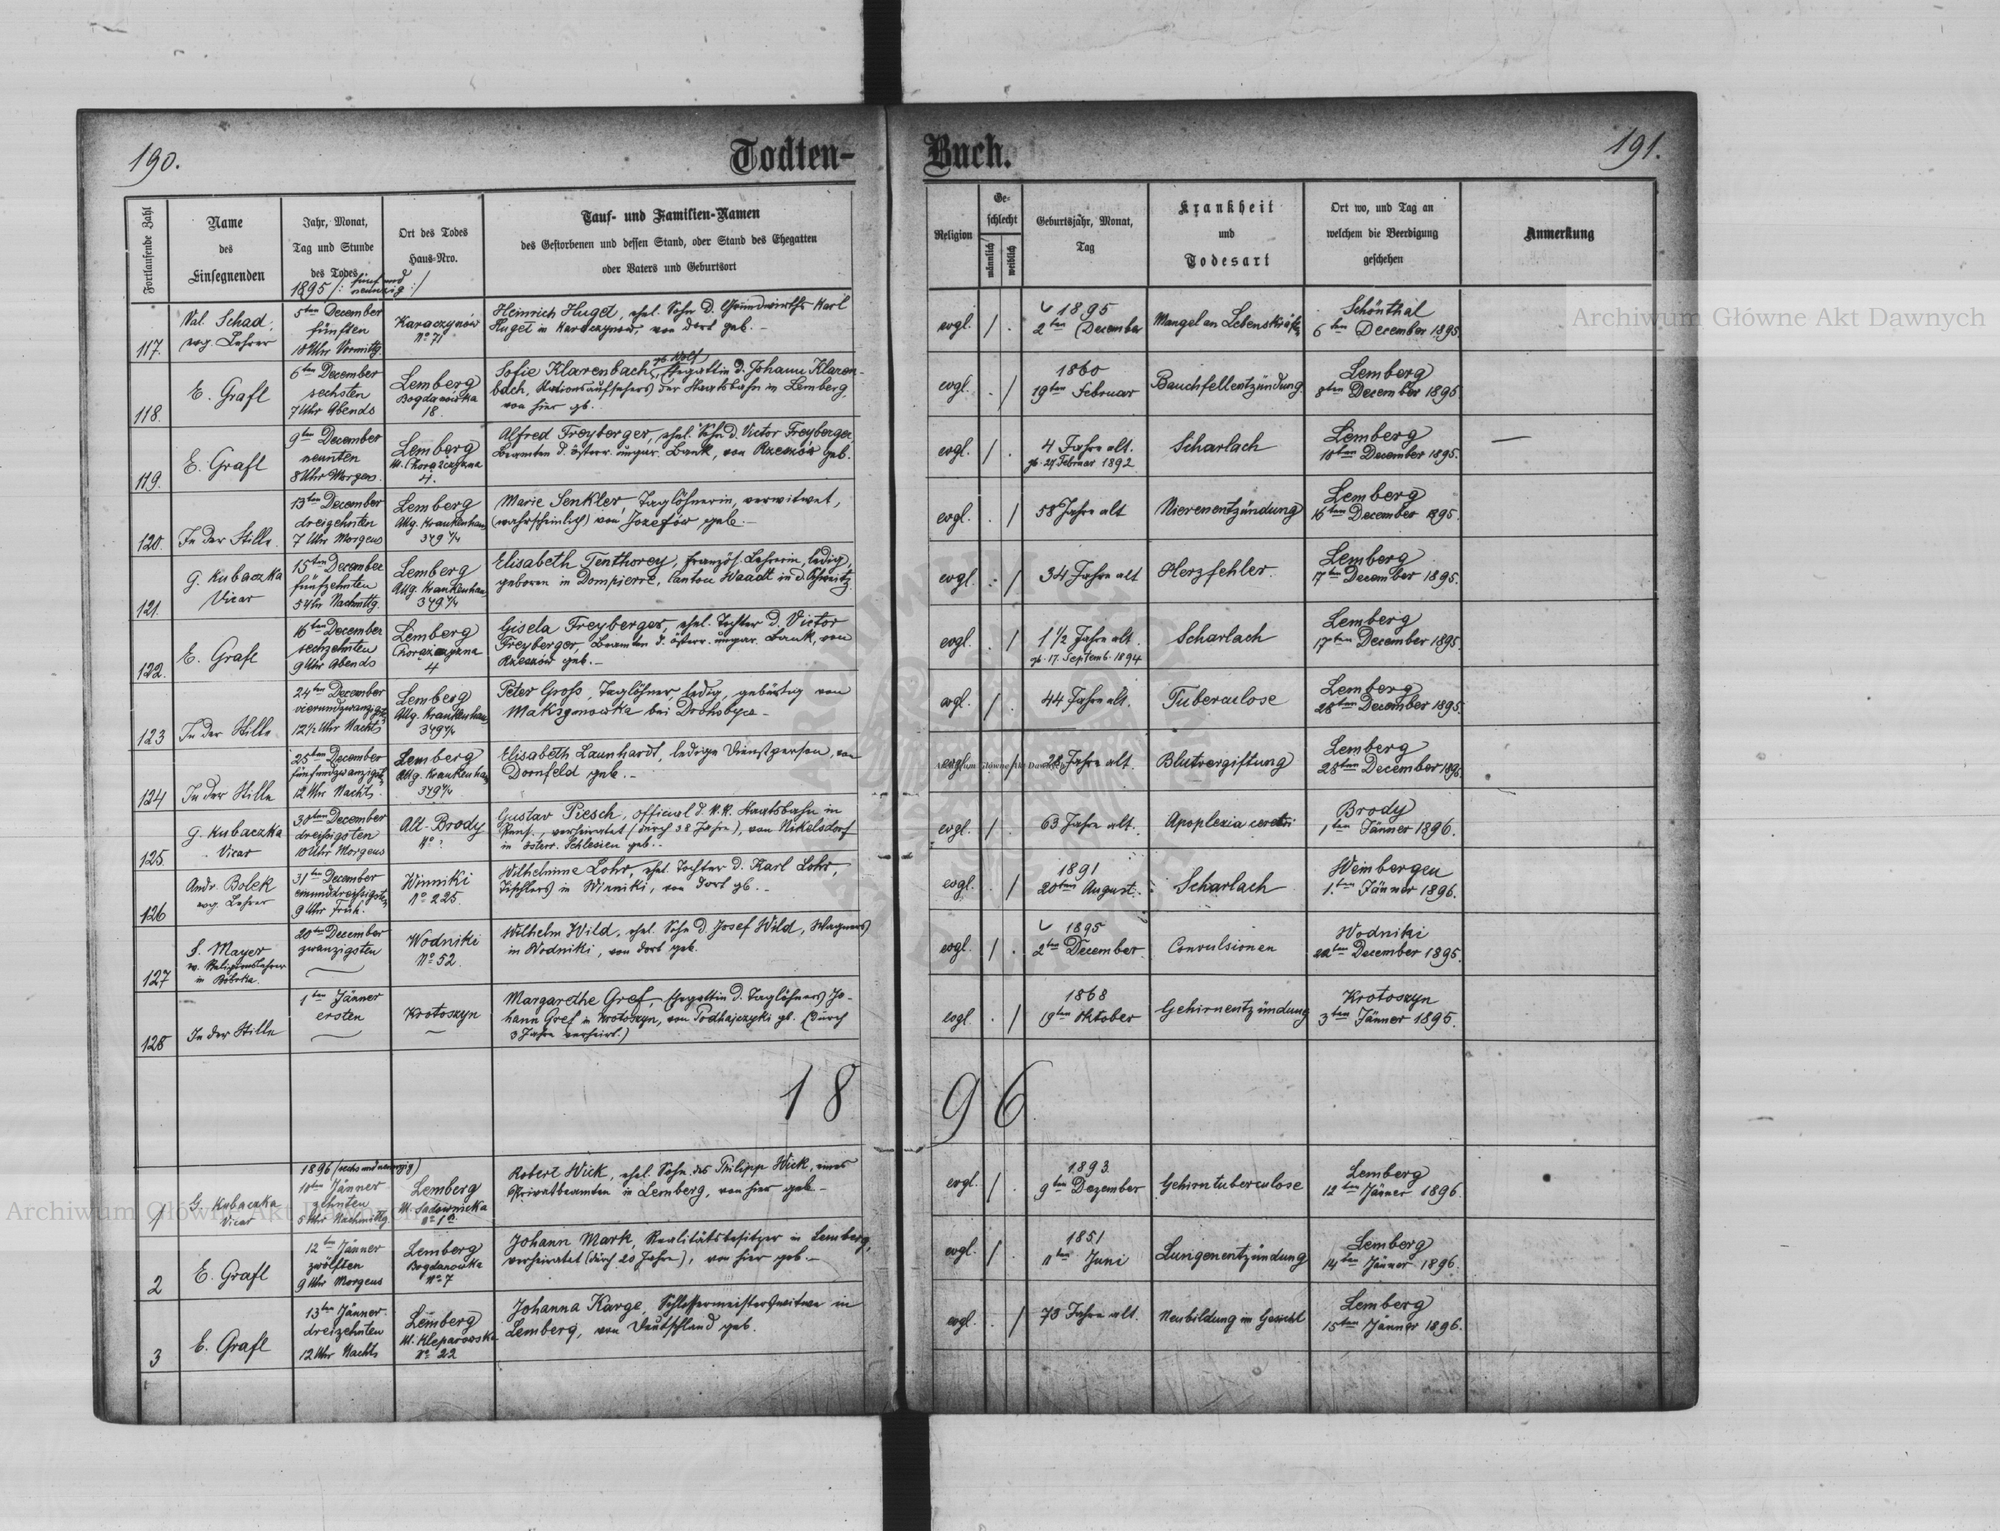 190.
Todten-
Buch.
191.
Fortlaufende Zahl
Name
des
Einsegnenden
Jahr, Monat,
Tag und Stunde
des Todes
Ort des Todes
Haus-Nro.
Tauf- und Familien-Namen
des Gestorbenen und dessen Stand, oder Stand des Ehegatten
oder Vaters und Geburtsort
Religion
Ge-
schlecht
männlich
weiblich
Geburtsjahr, Monat,
Tag
Krankheit
und
Todesart
Ort wo, und Tag an
welchem die Beerdigung
geschehen
Anmerkung
1895 /: fünf und
neunzig :/
117.
Val. Schad,
evg. Lehrer
5ten December
fünften
10 Uhr Vormittg.
Karaczynów
No 71
Heinrich Huget, ehel. Sohn d. Grundwirths Karl
Huget in Karaczynów, von dort geb. -
evgl.
/ .
1895
2ten December
Mangel an Lebenskräfte
Schönthal
6ten December 1895.
118.
E. Grafl
6ten December
sechsten
7 Uhr Abends
Lemberg
Bogdanowka
18.
Sofie Klarenbach, gb. Wolf, Ehegattin d. Johann Klaren-
bach, Stationsaufsehers der Staatsbahn in Lemberg,
von hier gb. -
evgl.
. /
1860
19ten Februar
Bauchfellentzündung
Lemberg
8ten December 1895.
119.
E. Grafl
9ten December
neunten
8 Uhr Morgens.
Lemberg
4.
Alfred Freyberger, ehel. Sohn d. Victor Freyberger,
Beamten d. österr. ungar. Bank, von Rzeszów geb.
evgl.
/ .
4 Jahre alt.
gb. 27 Februar 1892
Scharlach
Lemberg
10ten December 1895.
120.
In der Stille.
13ten December
dreizehnten
7 Uhr Morgens
Lemberg
Allg. Krankenhaus
379 1/4
Marie Senkler, Taglöhnerin, verwitwet,
(wahrscheinlich) von Jozefów geb. -
evgl.
. /
58 Jahre alt
Nierenentzündung
Lemberg
16ten December 1895.
121.
G. Kubaczka
Vicar
15ten December
fünfzehnten
5 Uhr Nachmttg.
Lemberg
Allg. Krankenhaus
379 1/4
Elisabeth Tenthorey, französ. Lehrerin, ledig,
geboren in Dompierre, Canton Waadt in d. Schweitz.
evgl.
. /
34 Jahre alt
Herzfehler.
Lemberg
17ten December 1895.
122.
E. Grafl
16ten December
sechzehnten
9 Uhr Abends
Lemberg
4
Gisela Freyberger, ehel. Tochter d. Victor
Freyberger, Beamten d. österr. ungar. Bank, von
Rzeszów geb. -
evgl.
. /
1 1/2 Jahre alt.
gb. 17. Septemb. 1894
Scharlach
Lemberg
17ten December 1895.
123
In der Stille
24ten December
vierundzwanzigst.
12 1/2 Uhr Nachts
Lemberg
Allg. Krankenhaus
379 1/4
Peter Gross, Taglöhner, ledig, gebürtig von
bei Drohobycz -
evgl.
/ .
44 Jahre alt.
Tuberculose
Lemberg
28ten December 1895.
124
In der Stille
25ten December
fünfundzwanzigst.
12 Uhr Nachts.
Lemberg
Allg. Krankenhaus
379 1/4
Elisabeth Launhardt, ledige Dienstperson, von
Dornfeld geb. -
evgl.
. /
28 Jahre alt.
Blutvergiftung
Lemberg
28ten December 1895.
125.
G. Kubaczka
Vicar
30ten December
dreissigsten
10 Uhr Morgens
Alt-Brody
No ?
Gustav Piesch, Official d. k.k. Staatsbahn in
Pens., verheiratet (durch 38 Jahre), von Nikelsdorf
in österr. Schlesien geb. -
evgl.
/ .
63 Jahre alt.
Apoplexia cerebri
Brody
1ten Jänner 1896.
126
Andr. Bolek
evg. Lehrer
31ten December
einunddreissigsten
9 Uhr Früh.
Winniki
No 225.
Wilhelmine Lohr, ehel. Tochter d. Karl Lohr,
Tischlers in Winniki, von dort gb. -
evgl.
. /
1891
20ten August.
Scharlach
Weinbergen
1.ten Jänner 1896.
127
Mayer
ev. Religionslehrer
in Bóbrka.
20ten December
zwanzigsten
Wodniki
No 52.
Wilhelm Wild, ehel. Sohn d. Josef Wild, Wagners
in Wodniki, von dort geb.
evgl.
/ .
1895
2ten December.
Convulsionen
Wodniki
22ten December 1895.
128
In der Stille
1ten Jänner
ersten
Krotoszyn
Margarethe Gref, Ehegattin d. Taglöhners Jo-
hann Gref in Krotoszyn, von Podhajczyki gb. (durch
3 Jahre verheirt.)
evgl.
. /
1868
19ten Oktober
Gehirnentzündung
Krotoszyn
3ten Jänner 1895.
18
96
1896 (sechs und neunzig)
1
G. Kubaczka
Vicar
10ten Jänner
zehnten
5 Uhr Nachmittg.
Lemberg
Ul. Sadownicka
Robert Wick, ehel. Sohn des Philipp Wick, eines
Privatbeamten in Lemberg, von hier geb. -
evgl.
/ .
1893.
9ten Dezember
Gehirntuberculose
Lemberg
12ten Jänner 1896.
2
E. Grafl
12ten Jänner
zwölften
9 Uhr Morgens
Lemberg
Bogdanowka
No 7
Johann Mark, Realitätsbesitzer in Lemberg,
verheiratet (durch 20 Jahre), von hier geb. -
evgl.
/ .
1851
11ten Juni
Lungenentzündung
Lemberg
14ten Jänner 1896.
3
E. Grafl
13ten Jänner
dreizehnten
12 Uhr Nachts
Lemberg
Ul. Kleparowska
No 22
Johanna Karge, Schlossermeisterswitwe in
Lemberg, von Deutschland geb.
evgl.
. /
73 Jahre alt.
Neubildung im Gesicht
Lemberg
15ten Jänner 1896.
Archiwum Główne Akt Dawnych
Archiwum Główne Akt Dawnych
Archiwum Główne Akt Dawnych